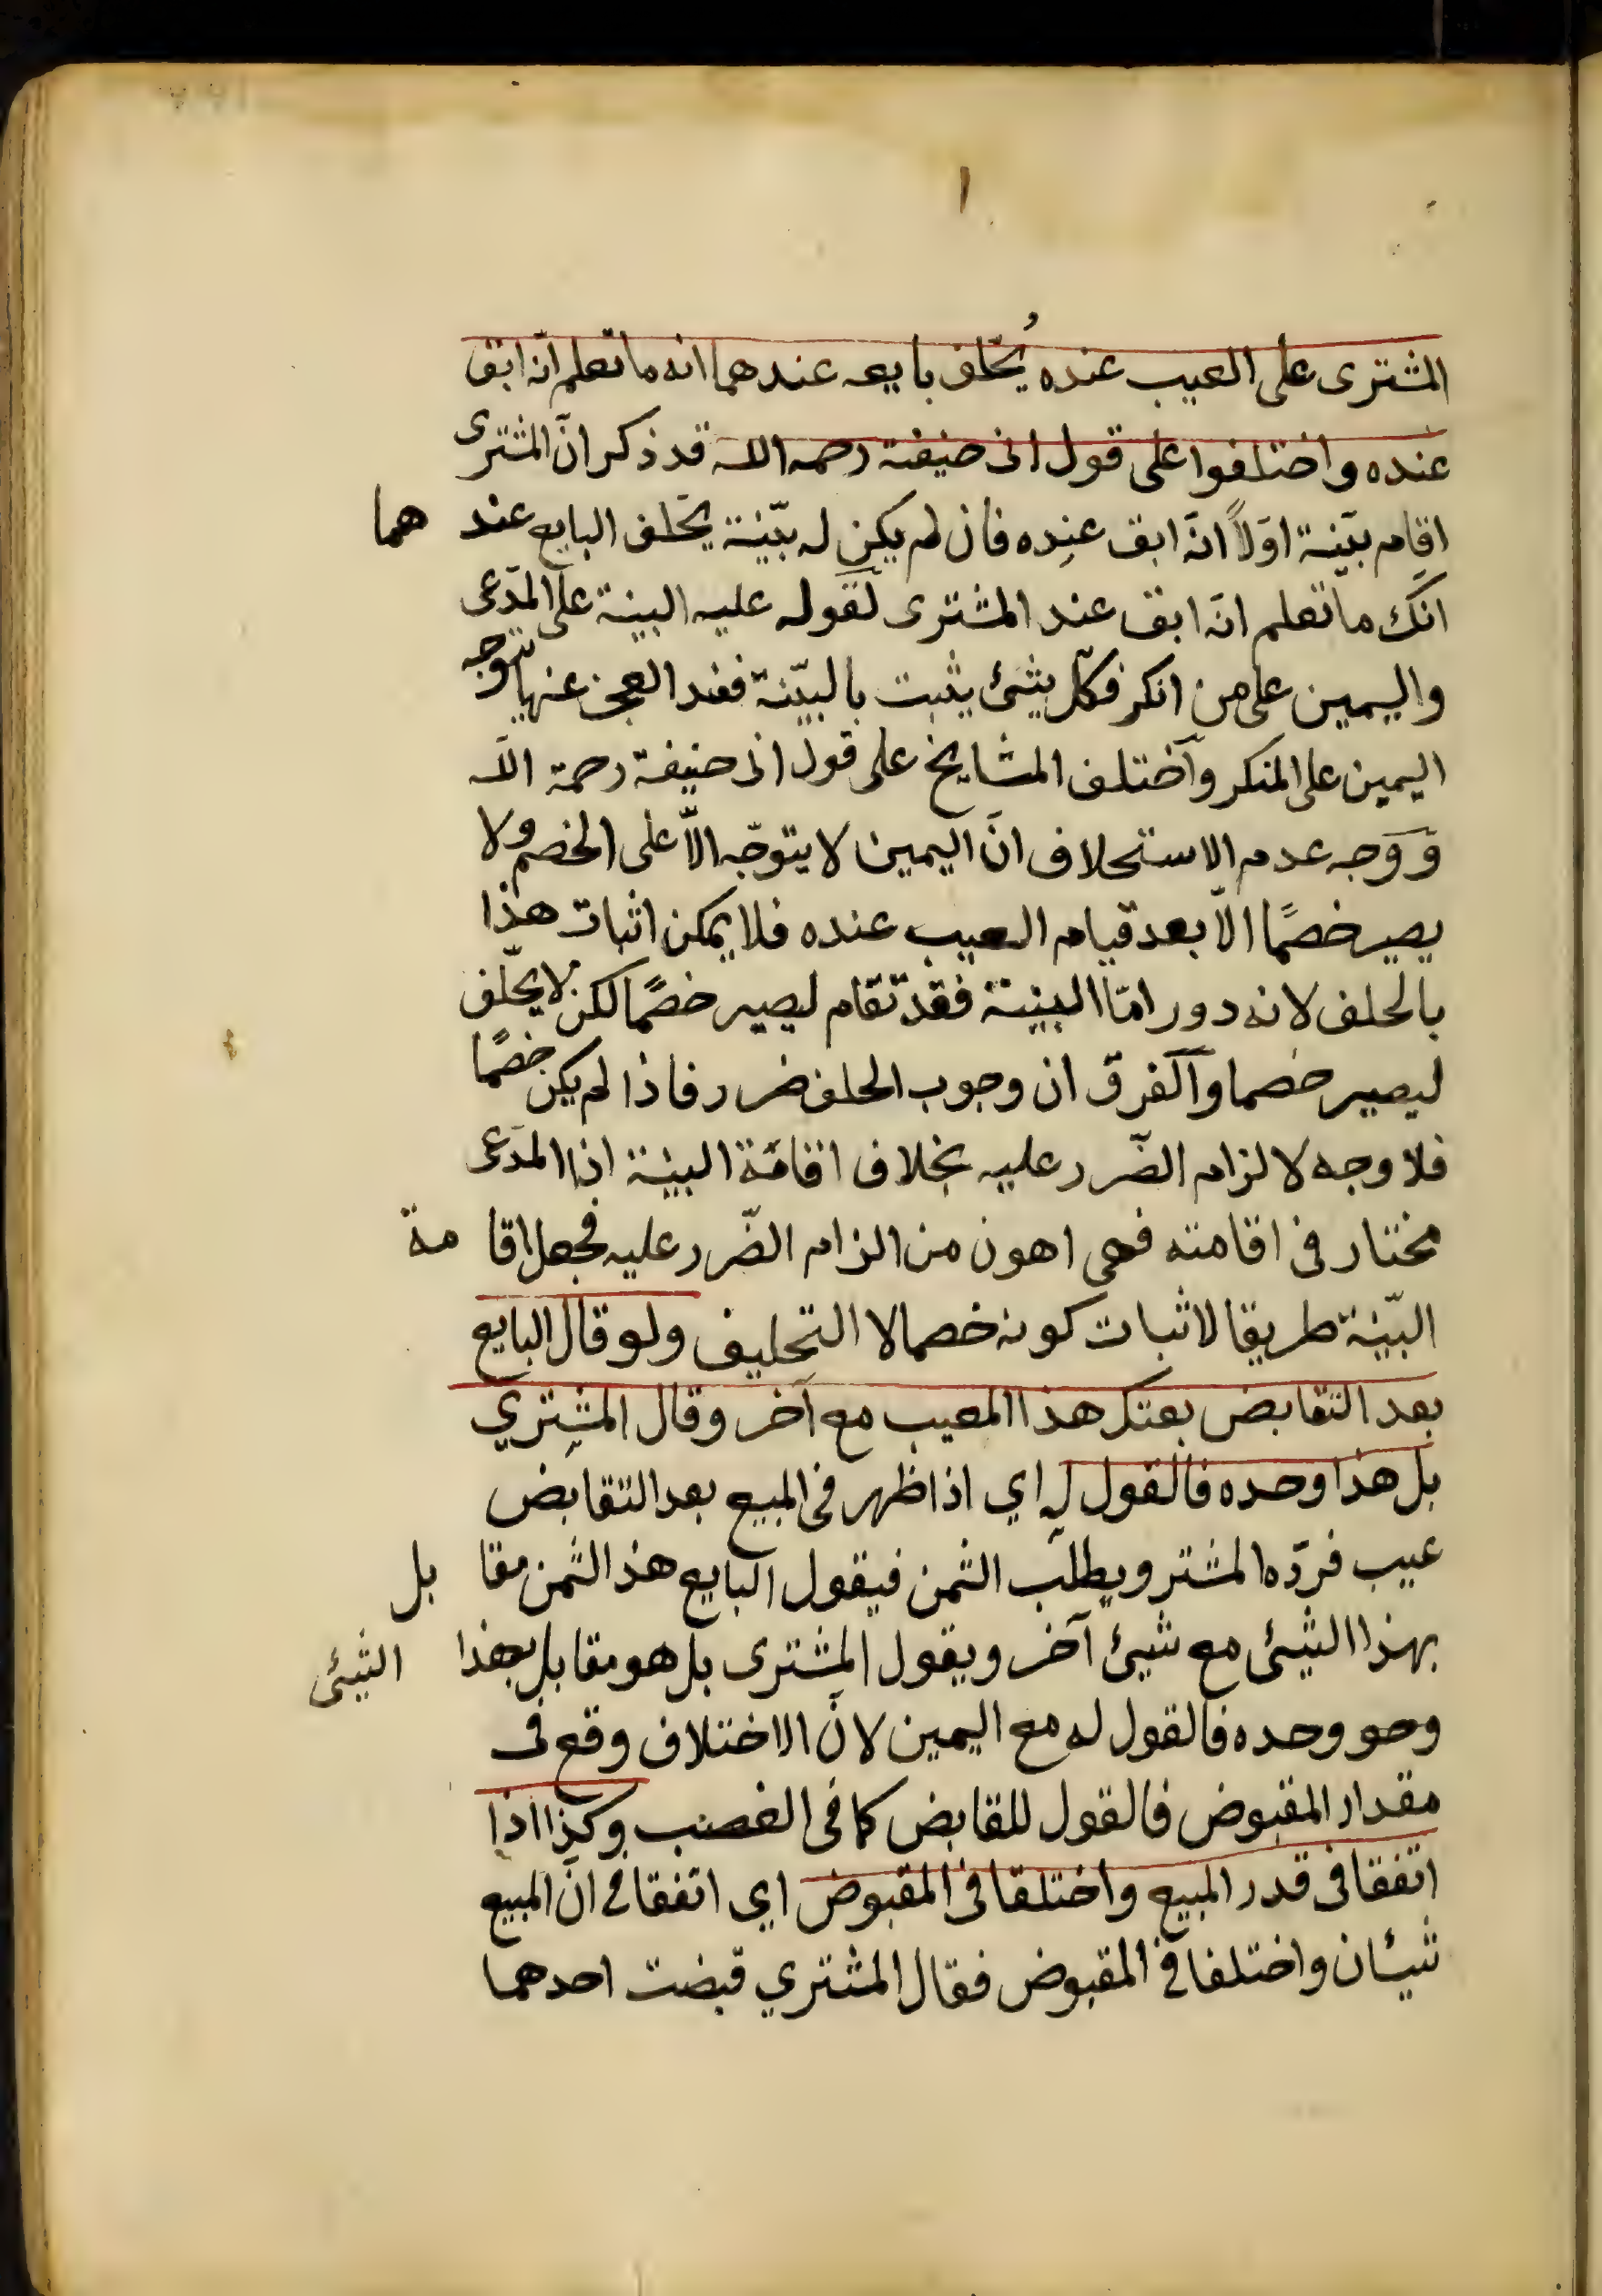 ١
المشترى على العيب عنده يُحلف بايعه عندهما انه ما تعلم انّه ابق
عنده واختلفوا على قول ابى حنيفة رحمه الله قد ذكر انّ المشترى
اقام بيّنة اوّلاً انّه ابق عنده فان لم يكن له بيّنة يحّلف البايع عند هما
انّك ما تعلم انّه ابق عند المشترى لقوله عليه البينة على المدّعى
واليمين على من انكر فكلّ شئ يثبت بالبيّنة فعند العجز عنها يتوجه
اليمين على المنكر وآختلف المشايخ على قول ابى حنيفة رحمة الله
وَوَجه عدم الاستحلاف انّ اليمين لا يتوجّه الاّ على الخصم ولا
يصير خصمًا الاّ بعد قيام العيب عنده فلا يمكن اثبات هذا
بالحلف لانه دور امّا البينة فقد تقام ليصير خصمًا لكن لا يحّلف
ليصير خصما وآلفرق ان وجوب الحلف ضرر فاذا لم يكن خصمًا
فلا وجه لالزام الضّرر عليه بخلاف اقامة البينة اذا المدّعى
مختار فى اقامته فهى اهون من الزام الضّرر عليه فجعل اقا مة
البيّنة طريقا لاثبات كونه خصما لا التحليف ولو قال البايع
بعد التقابض بعتك هذا المعيب مع آخر وقال المشتري
بل هذا وحده فالقول له اي اذا ظهر فى المبيع بعد التقابض
عيب فردّه المشتر ويطلب الثمن فيقول البايع هذ الثمن مقا بل
بهذا الشيئ مع شيئ آخر ويقول المشترى بل هو مقابل بهذا الشيئ
وهو وحده فالقول له مع اليمين لانّ الاختلاف وقع فى
مقدار المقبوض فالقول للقابض كما فى الغصب وكذا اذا
اتفقا فى قدر المبيع واختلفا فى المقبوض اي اتفقا فى انّ المبيع
شيئان واختلفا فى المقبوض فقال المشتري قبضت احدهما